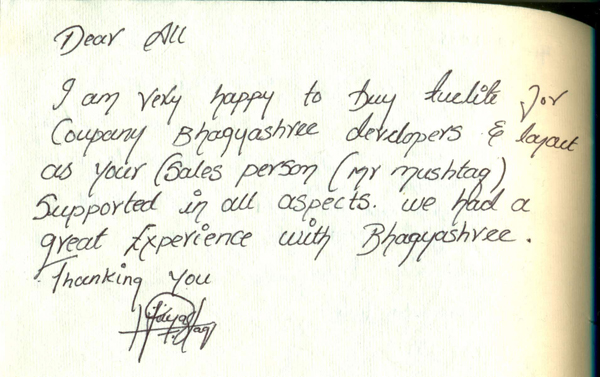 Dear All
I am very happy to buy for
Coupany Bhagyashree developers & layout
as your (Sales person (mr mushtaq)
Supported in all aspects. we had a
great Experience with Bhagyashree.
Thanking you